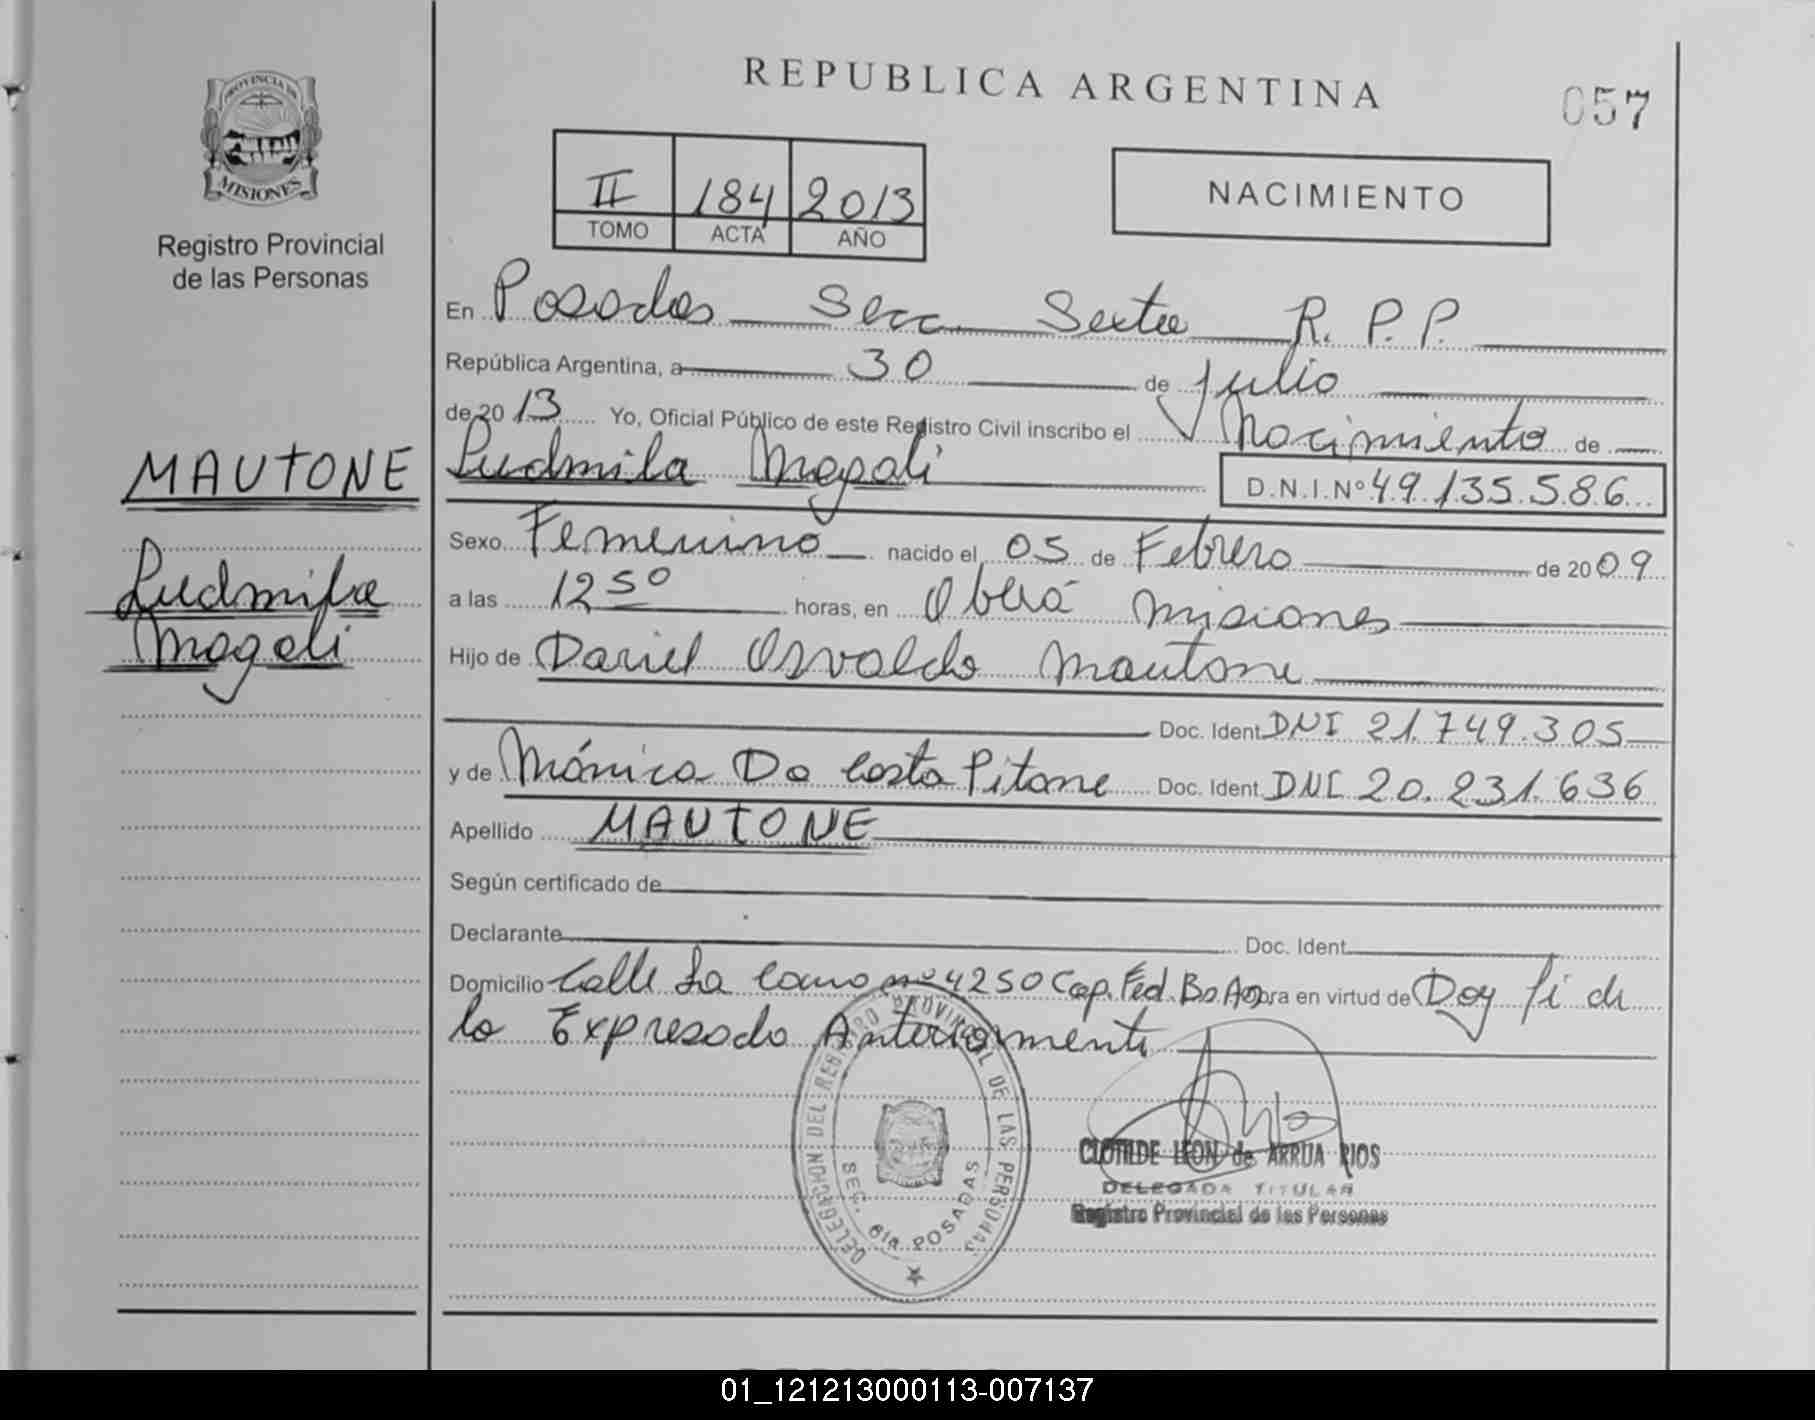 REPUBLICA ARGENTINA
057
PROVINCIA DE
MISIONES
Registro Provincial
de las Personas
II 184 2013
TOMO ACTA AÑO
NACIMIENTO
En Posadas Secc. Sexta R. P. P.
República Argentina, a 30 de Julio
de 20 13 Yo, Oficial Público de este Registro Civil inscribo el Nacimiento de
MAUTONE
Ludmila Magali
Ludmila Magali
D.N.I.Nº 49.135.586
Sexo Femenino nacido el 05 de Febrero de 20 09
a las 12 50 horas, en Oberá Misiones
Hijo de Daniel Osvaldo Mautone
Doc. Ident DNI 21.749.305
y de Mónica Da Costa Pitone Doc. Ident DNI 20.231.636
Apellido MAUTONE
Según certificado de
Declarante Doc. Ident
Domicilio Calle La nº 4250 Cap. Fed. Bs As obra en virtud de Doy fé de
lo Expresado Anteriormente
DELEGACION DEL REGISTRO PROVINCIAL DE LAS PERSONAS
SEC. 6ta POSADAS
CLOTILDE LEON de ARRUA RIOS
DELEGADA TITULAR
Registro Provincial de las Personas
01_121213000113-007137